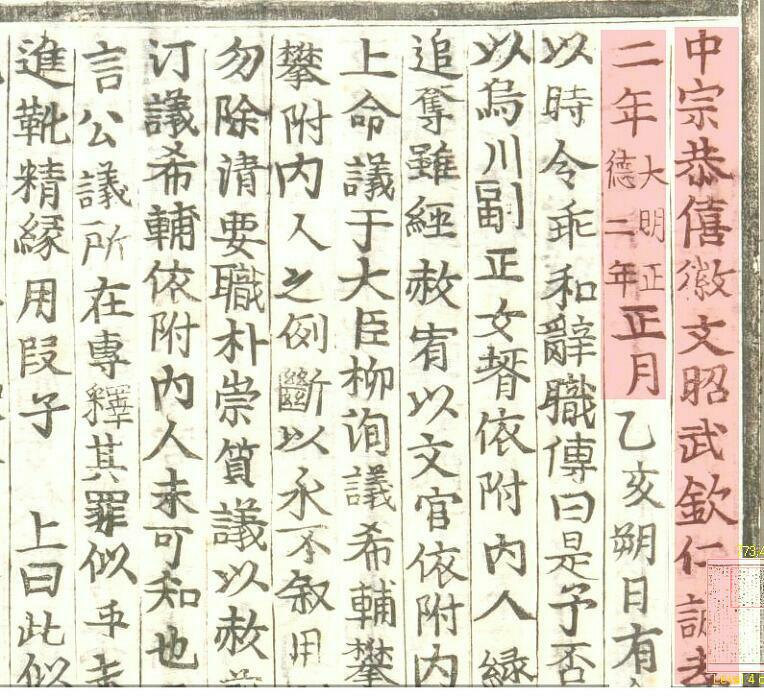 中宗恭僖徽文昭武欽仁誠
二年大明正德二年正月乙亥朔日有
以時令乖和辭職傳曰是予否
以烏川副正女壻依附內人緣
追奪雖經赦宥以文官依附內
上命議于大臣柳洵議希輔攀
攀附內人之例斷以永不叙用
勿除清要職朴崇質議以赦
汀議希輔依附內人未可知也
言公議所在專釋其罪似乎
進靴精縁用段子 上曰此似
Level 4